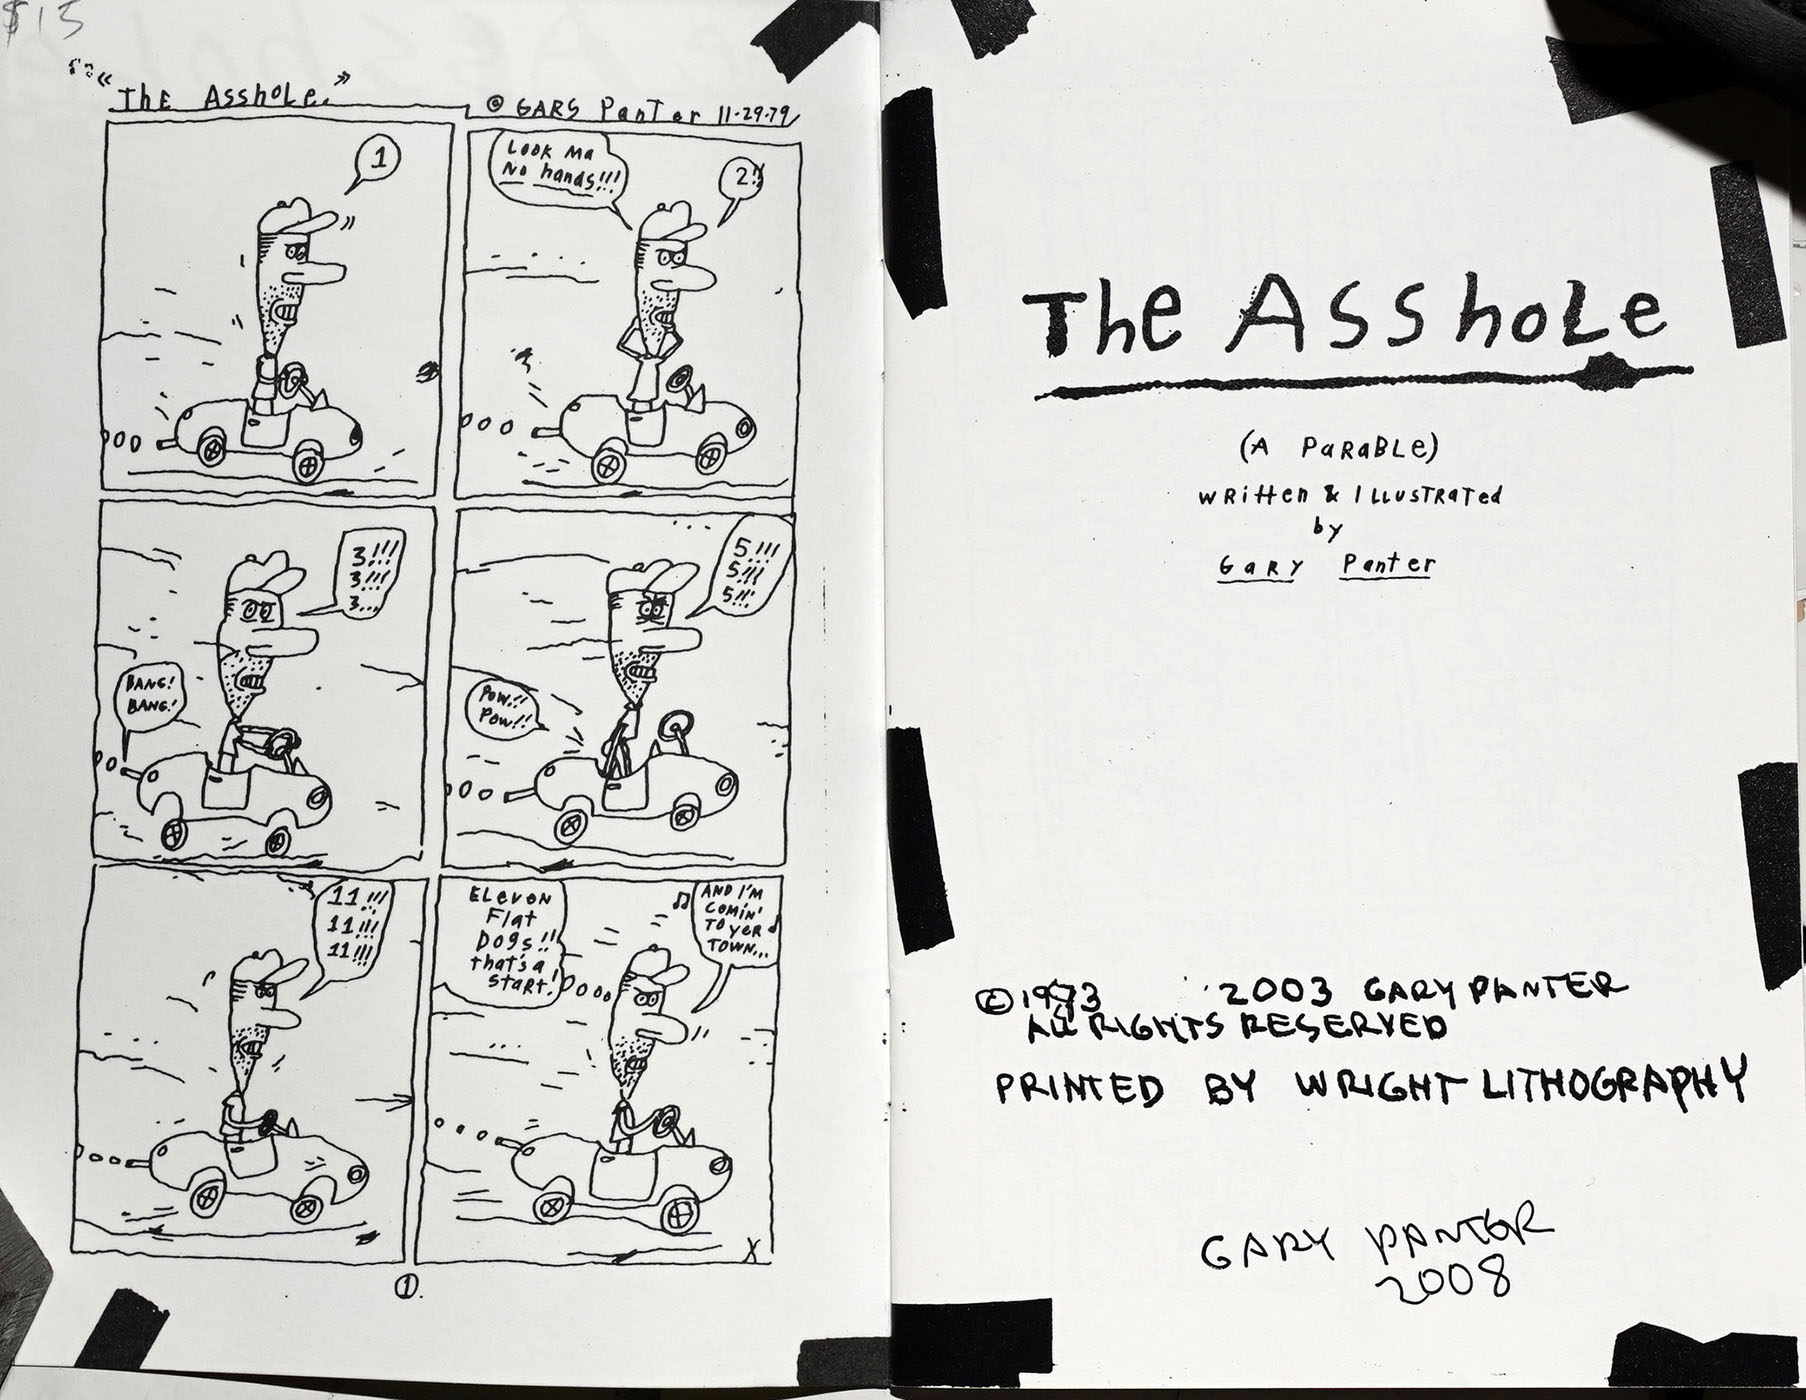 $15
"The Asshole."
© GARS Panter 11-29-79
1
Look Ma
No hands!!!
2!!
3!!!
3!!!
3...
BANG!
BANG!
5!!!
5!!!
5!!!
Pow!!
Pow!!
11!!!
11!!!
11!!!
Eleven
Flat
Dogs!!
that's a
start!
♫ AND I'M
COMIN'
TO YER ♪
TOWN...
X
1.
The Asshole
(A Parable)
written & Illustrated
by
Gary Panter
© 1973 2003 GARY PANTER
ALL RIGHTS RESERVED
PRINTED BY WRIGHT LITHOGRAPHY
GARY PANTER
2008